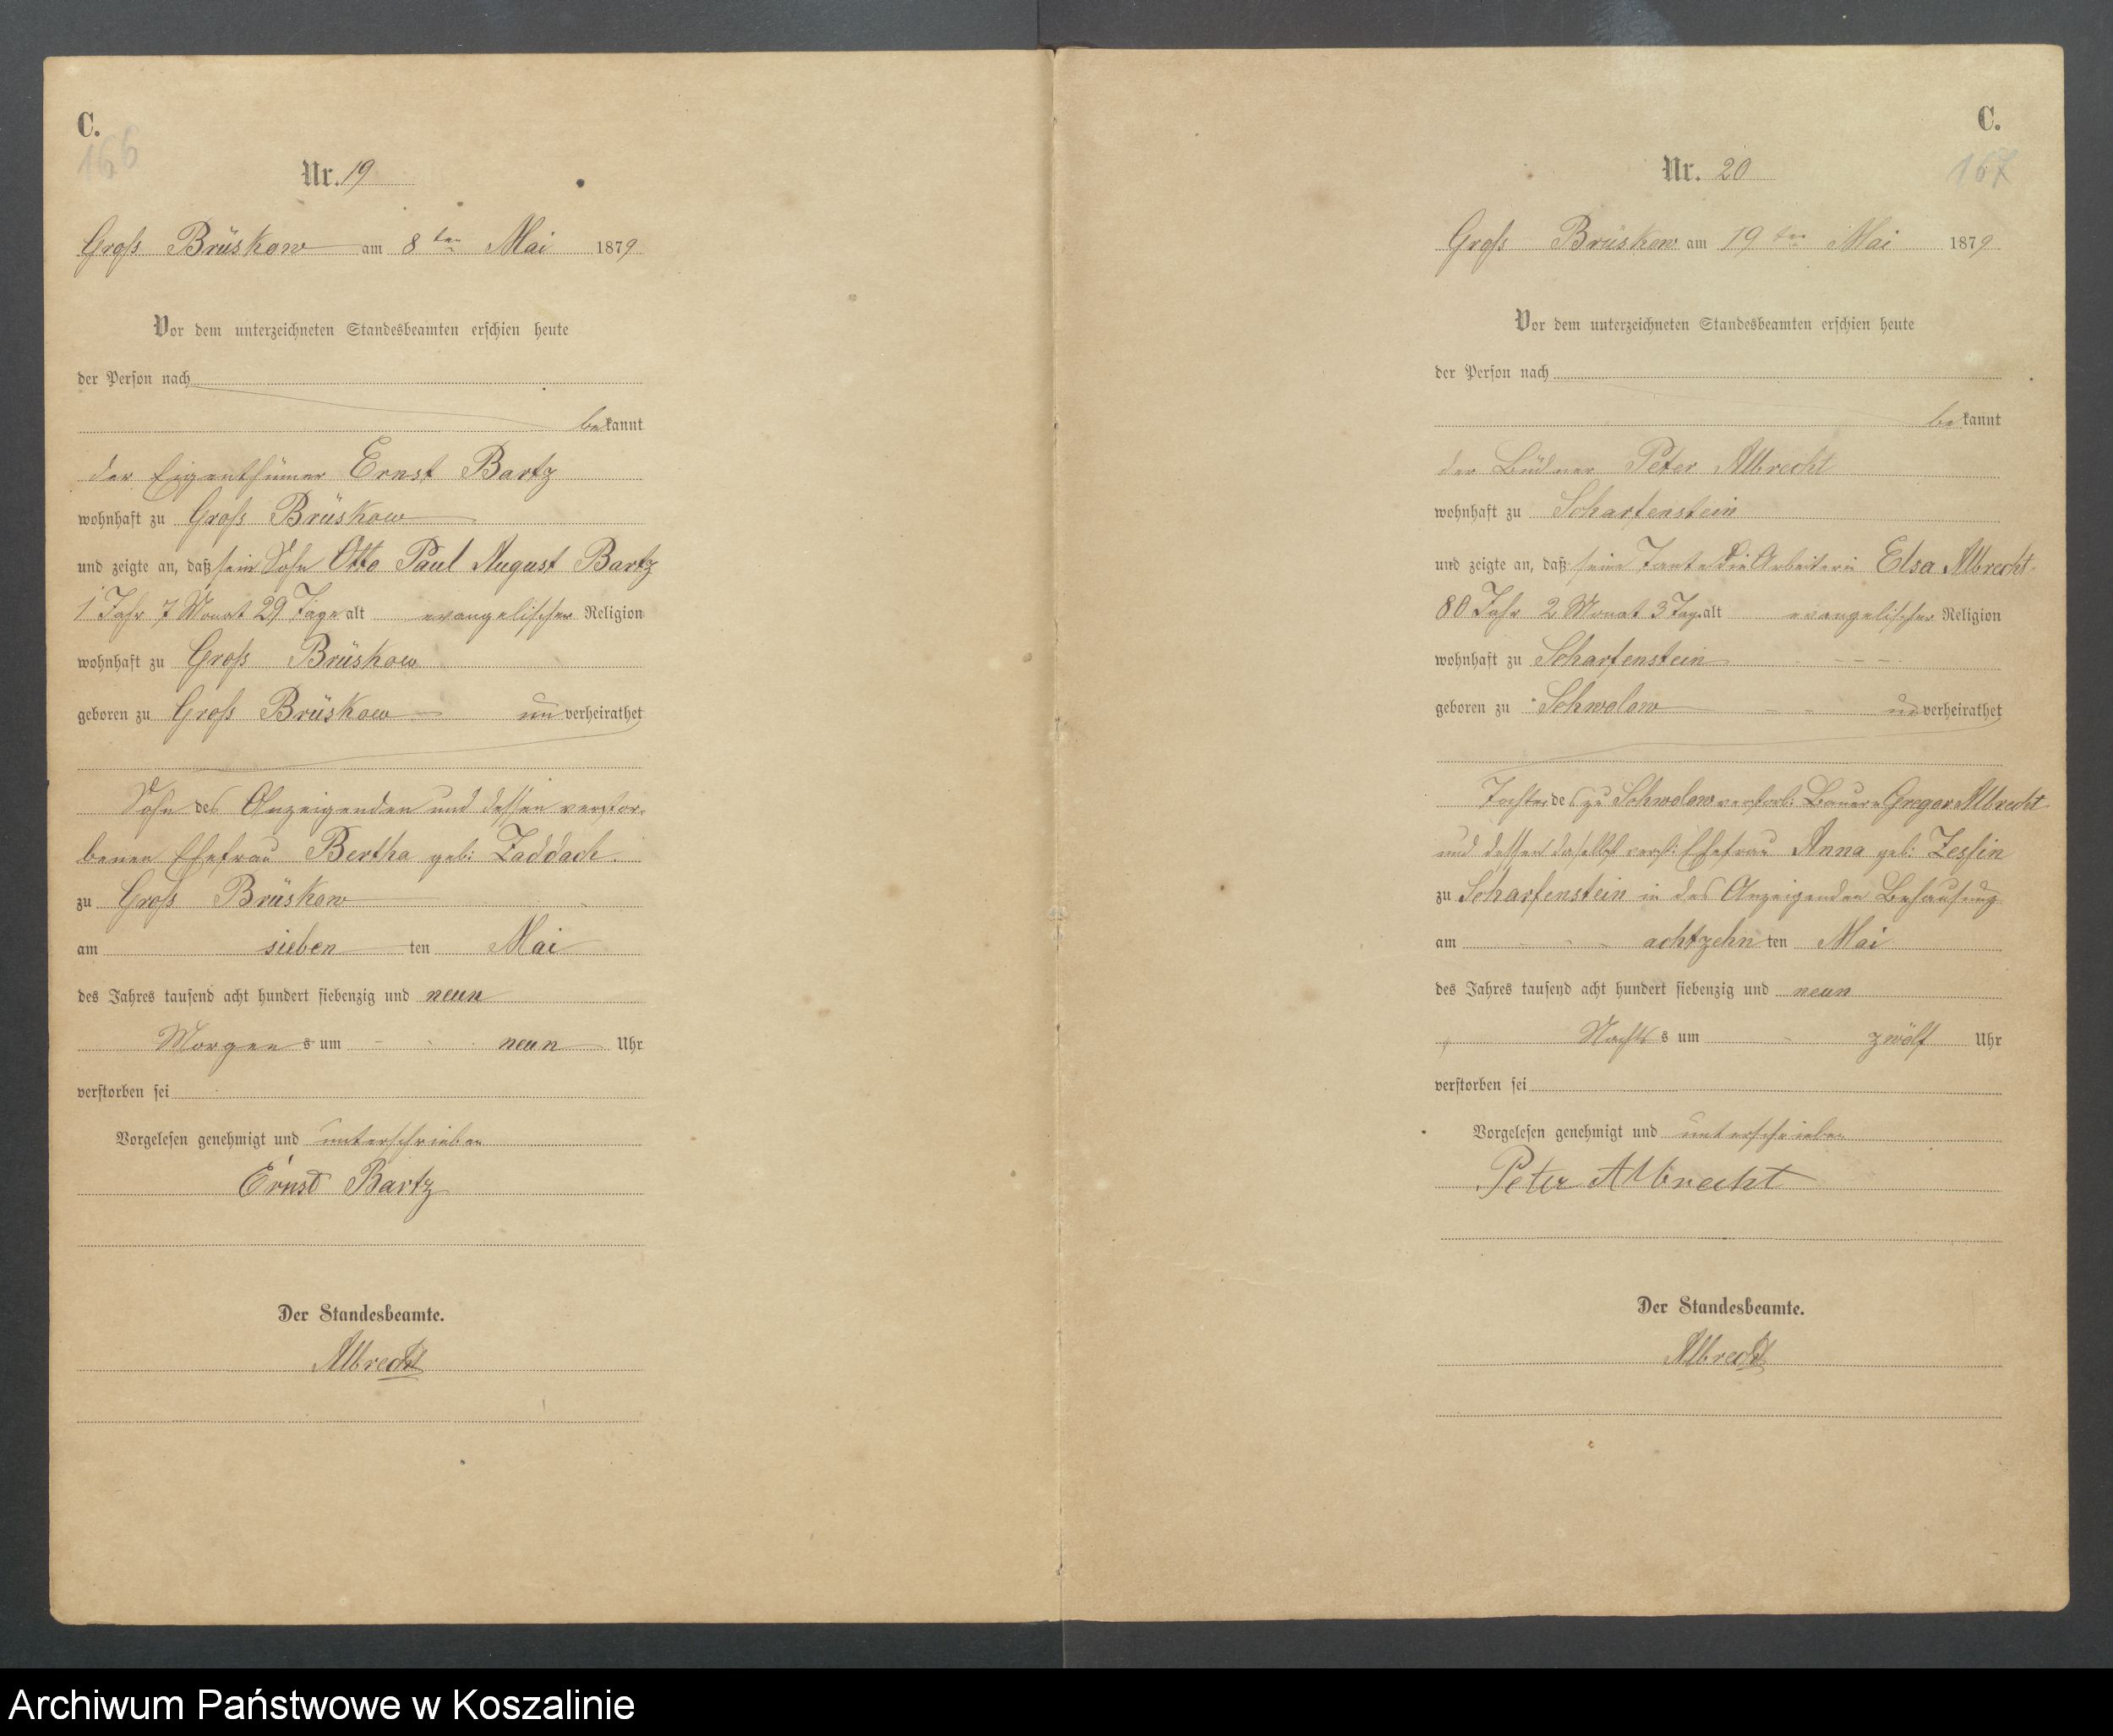 C.
166
Nr. 19
Groß Brüskow am 8ten Mai 1879
Vor dem unterzeichneten Standesbeamten erschien heute
der Person nach
bekannt
der Eigenthümer Ernst Bartz
wohnhaft zu Groß Brüskow
und zeigte an, daß sein Sohn Otto Paul August Bartz
1 Jahr 7 Monat 29 Tage alt evangelischer Religion
wohnhaft zu Groß Brüskow
geboren zu Groß Brüskow unverheirathet
Sohn des Anzeigenden und dessen verstor-
benen Ehefrau Bertha geb: Zaddach
zu Groß Brüskow
am siebenten Mai
des Jahres tausend acht hundert siebenzig und neun
Morgens um neun Uhr
verstorben sei
Vorgelesen genehmigt und unterschrieben
Ernst Bartz
Der Standesbeamte.
Albrecht
C.
167
Nr. 20
Groß Brüskow am 19ten Mai 1879
Vor dem unterzeichneten Standesbeamten erschien heute
der Person nach
bekannt
der Büdner Peter Albrecht
wohnhaft zu Scharfenstein
und zeigte an, daß seine Tante die Arbeiterin Elsa Albrecht
80 Jahr 2 Monat 3 Tag alt evangelischer Religion
wohnhaft zu Scharfenstein
geboren zu Schwolow unverheirathet
Tochter des zu Schwolow verstorb: Bauern Gregor Albrecht
und dessen daselbst verst: Ehefrau Anna geb: Zessin
zu Scharfenstein in des Anzeigenden Behausung
am achtzehnten Mai
des Jahres tausend acht hundert siebenzig und neun
Nachts um zwölf Uhr
verstorben sei
Vorgelesen genehmigt und unterschrieben
Peter Albrecht
Der Standesbeamte.
Albrecht
Archiwum Państwowe w Koszalinie